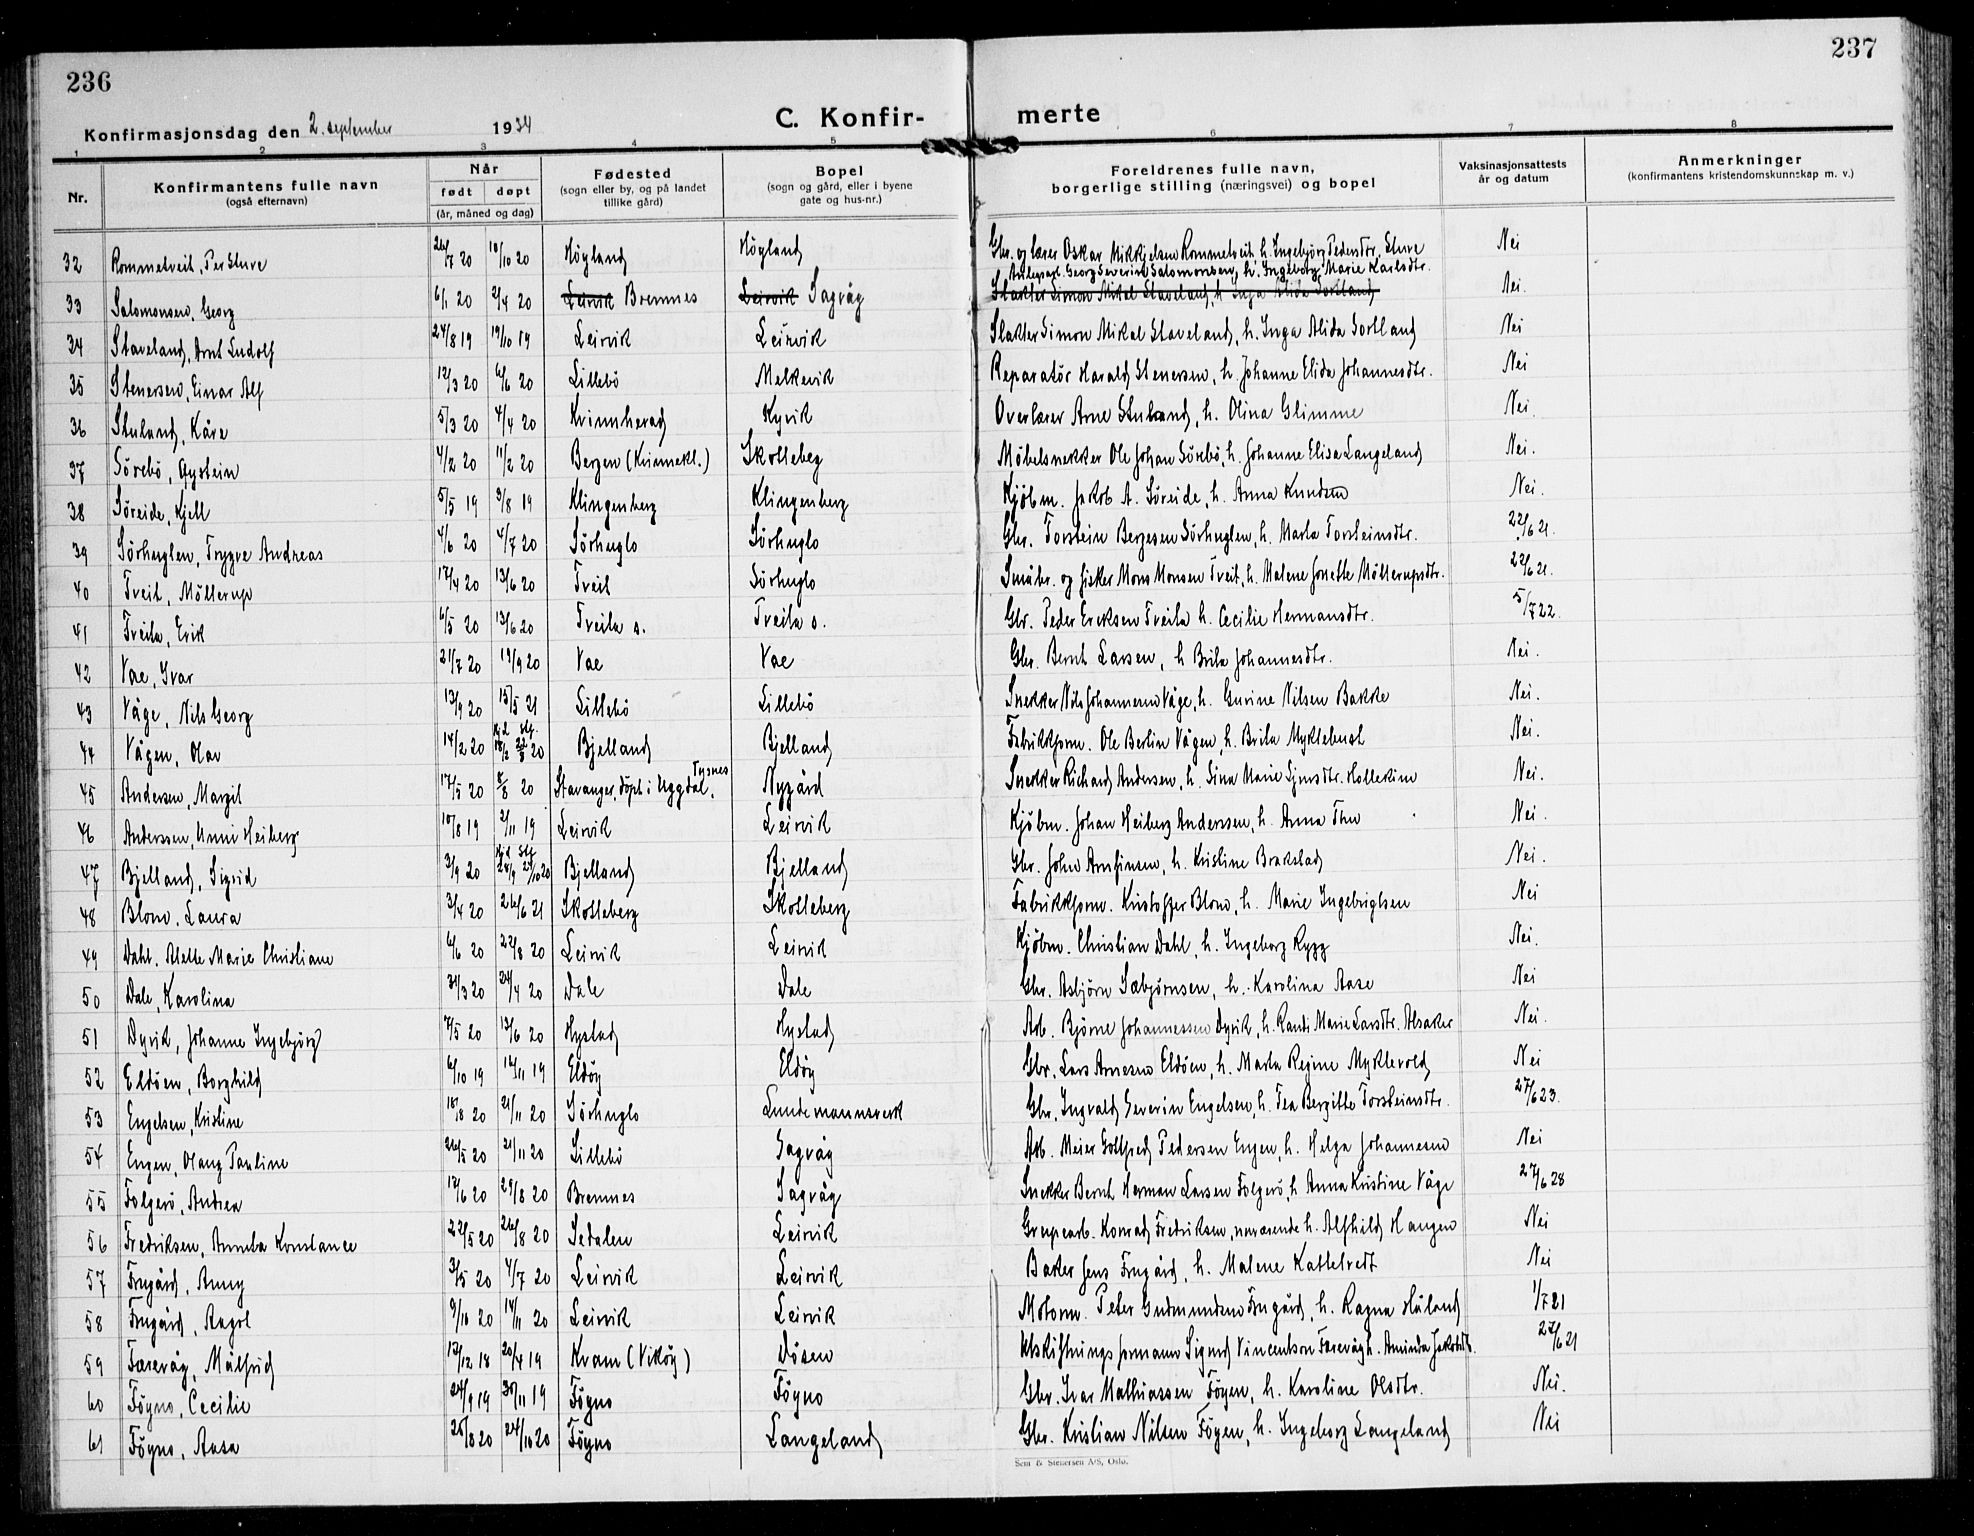 236
237
Konfirmasjonsdag den 2. september 1934
C. Konfir-
merte
1 2 3 4 5 6 7 8
Nr. Konfirmantens fulle navn Når Fødested Bopel Foreldrenes fulle navn, Vaksinasjonsattests Anmerkninger
(også efternavn) født døpt (sogn eller by, og på landet (sogn og gård, eller i byene borgerlige stilling (næringsvei) og bopel år og datum (konfirmantens kristendomskunnskap m. v.)
(år, måned og dag) tillike gård) gate og hus-nr.)
32 Rommetveit, Per Sture 26/7 20 10/10 20 Høgland Høgland Gbr. og lærer Oskar Mikkjelsen Rommetveit, h. Ingebjørg Pedersdtr. Sture Nei
Georg Severin Salomonsen, h. Ingeborg Marie Karlsdtr.
33 Salomonsen, Georg 6/1 20 2/4 20 Leirvik Bremnes Leirvik Sagvåg Slakter Simon Mikal Staveland, h. Inga Alida Sortland Nei.
34 Staveland, Arnt Ludolf 24/8 19 19/10 19 Leirvik Leirvik Slakter Simon Mikal Staveland, h. Inga Alida Sortland Nei
35 Stenersen, Einar Alf 12/3 20 6/6 20 Lillebö Melkevik Reparatör Harald Stenersen, h. Johanne Elida Johannesdtr. Nei
36 Stuland, Kåre 5/3 20 4/4 20 Kvinnherad Kyvik Overlærer Arne Stuland, h. Olina Glimme Nei.
37 Sörebö, Øystein 4/2 20 11/2 20 Bergen (Kvinnekl.) Skolleberg Möbelsnekker Ole Johan Sörebö, h. Johanne Elisa Langeland Nei.
38 Söreide, Kjell 5/5 19 9/8 19 Klingenberg Klingenberg Kjöbm. Jakob A. Söreide, h. Anna Knudsen Nei.
39 Sörhuglen, Trygve Andreas 4/6 20 4/7 20 Sörhuglo Sörhuglo Gbr. Torstein Bergesen Sörhuglen, h. Marta Torsteinsdtr. 22/6 21.
40 Tveit, Möllerup 17/4 20 13/6 20 Tveit Sörhuglo Småbr. og fisker Mons Monsen Tveit, h. Malene Jonette Möllerupsdtr. 22/6 21.
41 Tveita, Erik 6/5 20 13/6 20 Tveita s. Tveita s. Gbr. Peder Eriksen Tveita h. Cecilie Hermansdtr. 5/7 22.
42 Vae, Ivar 21/7 20 19/9 20 Vae Vae Gbr. Bernt Larsen, h Brita Johannesdtr. Nei.
43 Våge, Nils Georg 13/9 20 15/5 21 Lillebö Lillebö Snekker Nils Johannesen Våge, h. Gurine Nilsen Bakke Nei.
44 Vågen, Olav 14/2 20 Hjd. 18/2 Stf. 22/8 20 Bjelland Bjelland Fabrikkform. Ole Berlin Vågen, h. Brita Myklebust Nei.
45 Andersen, Margit 17/5 20 8/8 20 Stavanger, döpt i Uggdal, Tysnes Nygård Snekker Richard Andersen, h. Sina Marie Sjursdtr. Hollekim Nei.
46 Anderssen, Unni Heiberg 10/8 19 2/11 19 Leirvik Leirvik Kjöbm. Johan Heiberg Anderssen, h. Anna Thu Nei.
47 Bjelland, Sigrid 3/9 20 Hjd. 28/9 Stf. 24/10 20 Bjelland Bjelland Gbr. John Arnfinsen, h. Kristine Brakstad Nei.
48 Blom, Laura 3/4 20 26/6 21 Skolleberg Skolleberg Fabrikkform. Kristoffer Blom, h. Marie Ingebrigtsen Nei
49 Dahl, Alette Marie Christiane 6/6 20 22/8 20 Leirvik Leirvik Kjöbm. Christian Dahl, h. Ingeborg Rygg Nei.
50 Dale, Karolina 31/3 20 24/4 20 Dale Dale Gbr. Asbjörn Sæbjörnsen, h. Karolina Aase Nei
51 Dyvik, Johanne Ingebjörg 7/5 20 13/6 20 Hystad Hystad Arb. Bjørne Johannessen Dyvik, h. Randi Marie Larsdtr. Alsaker Nei.
52 Eldöen, Borghild 6/10 19 14/11 19 Eldöy Eldöy Gbr. Lars Arnesen Eldöen, h. Marta Regine Myklevold Nei
53 Engelsen, Kristine 18/8 20 21/11 20 Sörhuglo Lundemannsverk Gbr. Ingvald Severin Engelsen, h. Tea Bergitte Torsteinsdtr. 27/6 23.
54 Engen, Olaug Pauline 26/5 20 21/11 20 Lillebö Sagvåg Arb. Meier Gottfred Pedersen Engen, h. Helga Johannesen Nei
55 Folgerö, Andrea 17/6 20 29/8 20 Bremnes Sagvåg Snekker Bernt Herman Larsen Folgerö, h Anna Kristine Våge 27/6 28
56 Fredriksen, Annbla Konstance 22/5 20 26/8 20 Sedalen Leirvik Grupearb. Konrad Fredriksen, nuværende h. Alfhild Haugen Nei
57 Frugård, Anny 3/5 20 4/7 20 Leirvik Leirvik Baker Jens Frugård, h. Malene Kattetvedt Nei
58 Frugård, Aagot 9/10 20 14/11 20 Leirvik Leirvik Motorm. Peter Gudmundsen Frugård, h. Ragna Håland 1/7 21
59 Færevåg, Målfrid 12/12 18 20/4 19 Kvam (Viköy) Dösen Utskiftningsformann Sigurd Vincentson Færevåg h. Aminda Jakobsdtr. 27/6 21
60 Föyno, Cecilie 24/9 19 30/11 19 Föyno Föyno Gbr. Ivar Mathiassen Föyen, h. Karoline Olsdtr. Nei.
61 Föyno, Aasa 25/8 20 24/10 20 Föyno Langeland Gbr. Kristian Nilsen Föyen, h. Ingeborg Langeland Nei
Sem & Stenersen A/S, Oslo.